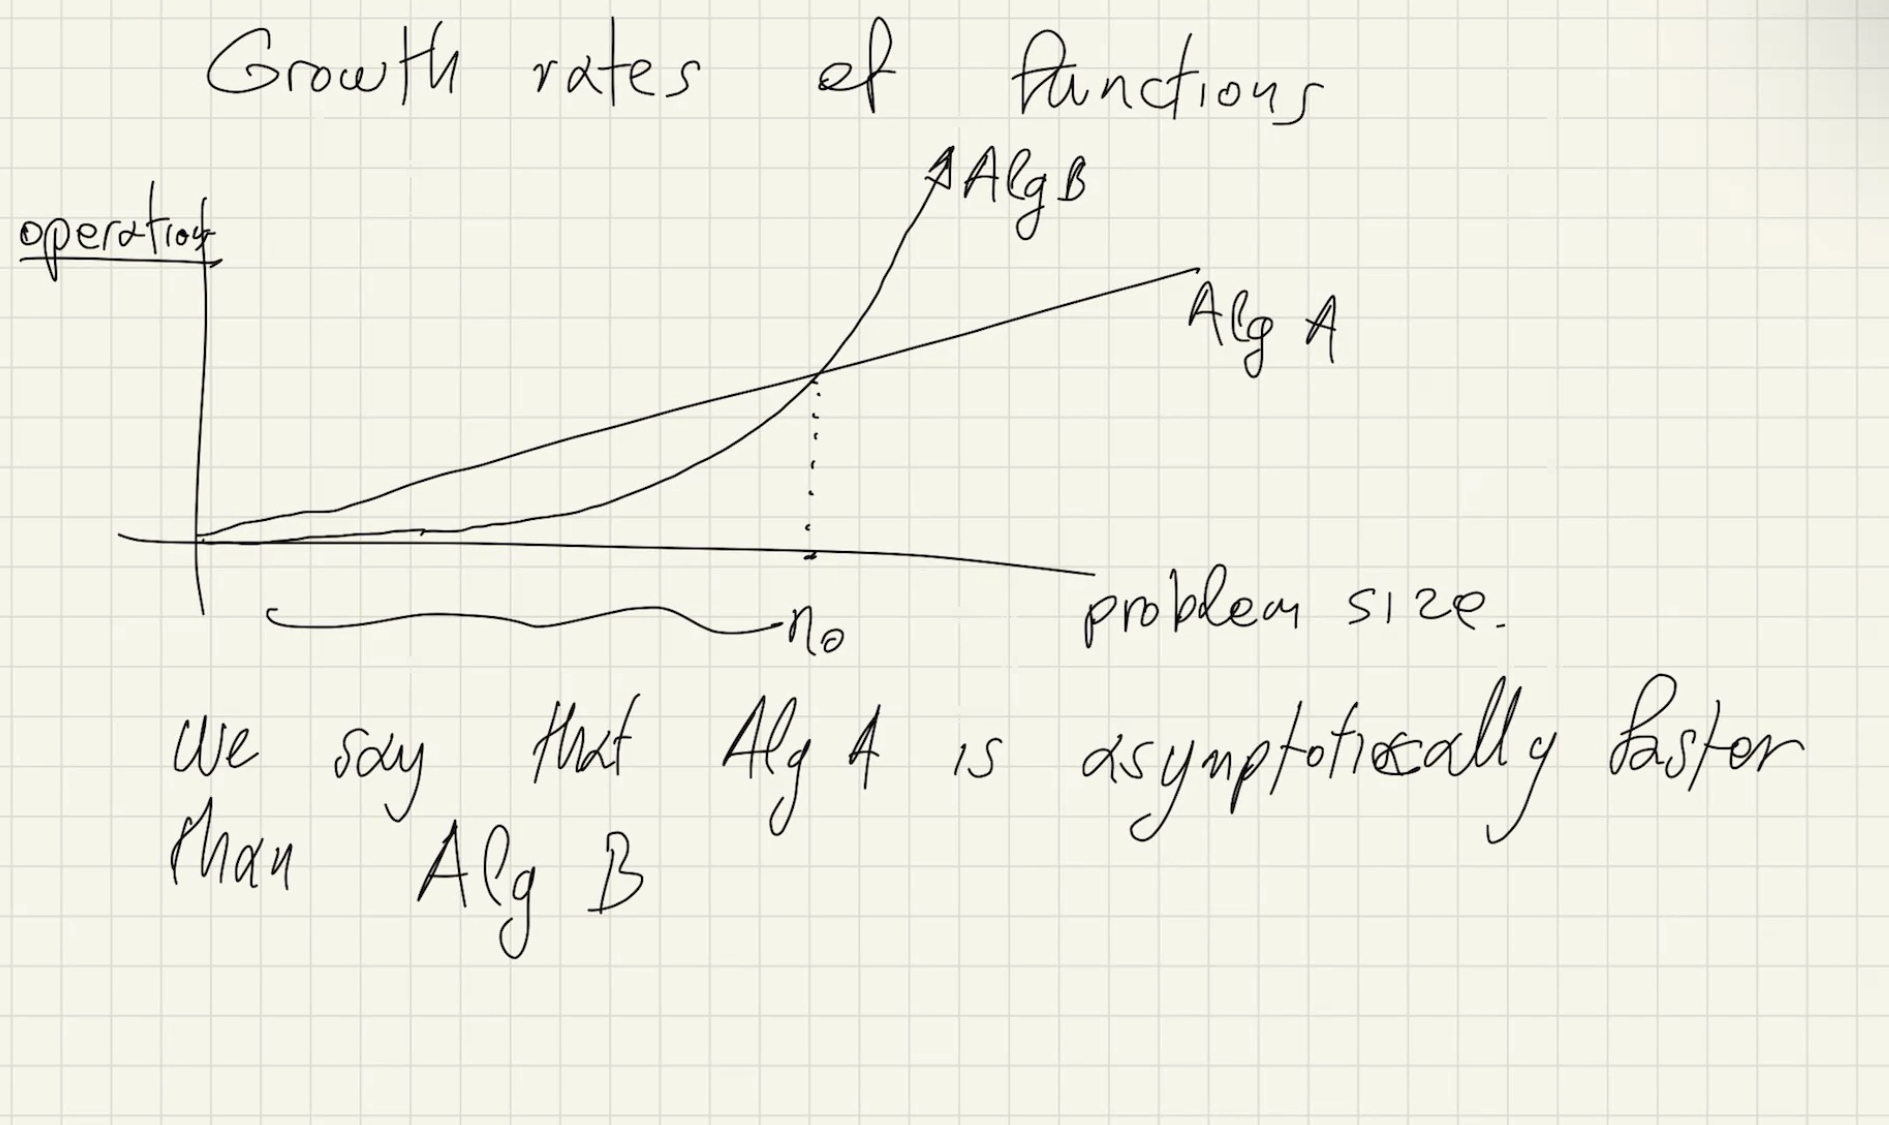 Growth rates of functions
Alg B
operation
Alg A
n₀
problem size.
we say that Alg A is asymptotically faster
than Alg B